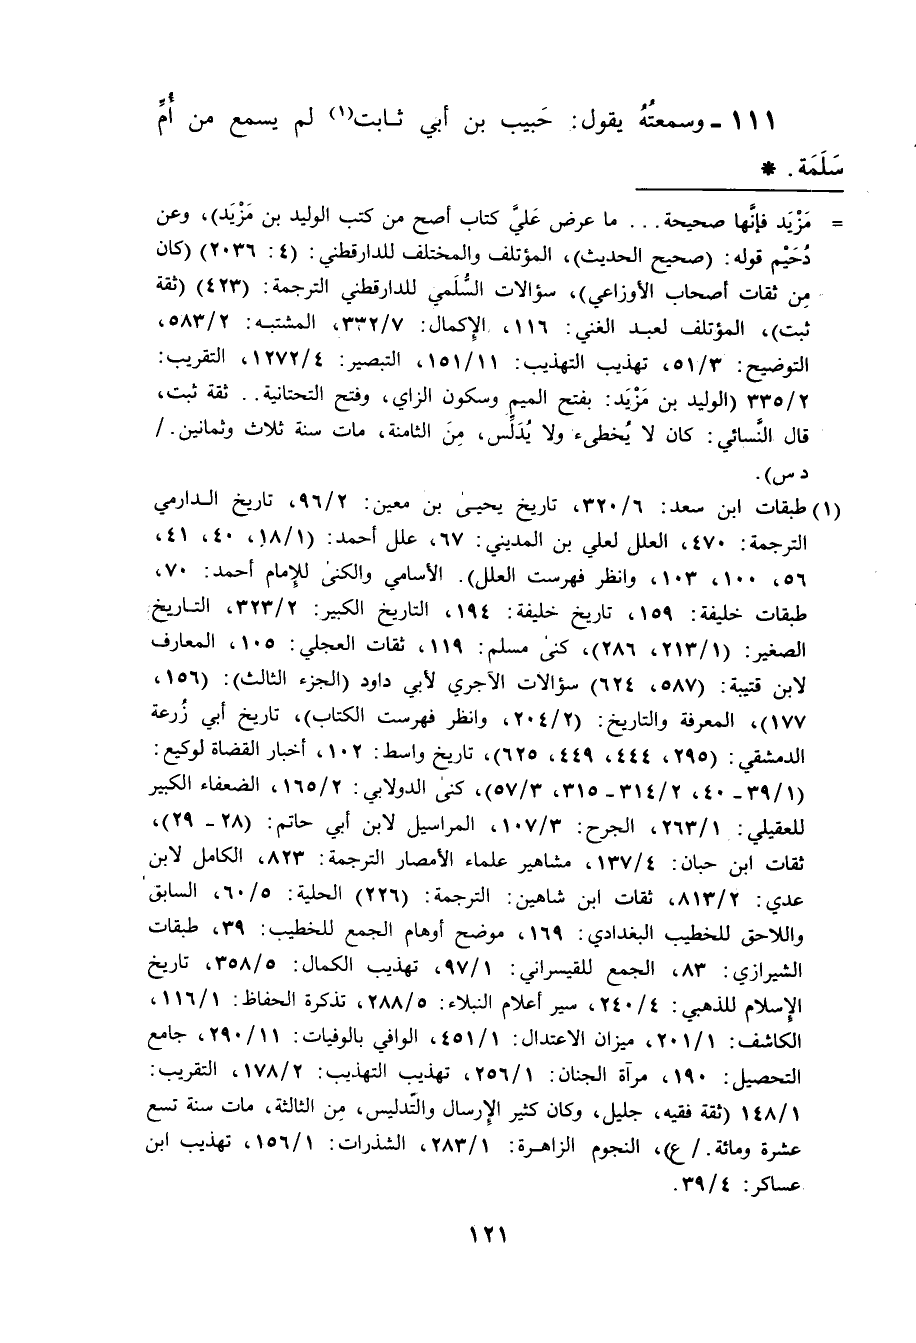 ١١١ ـ وسمعتُهُ يقول: حَبيب بن أبي ثـابت(١) لم يسمع من أُمِّ
سَلَمَة. *
= مَزْيَد فإنَّها صحيحة... ما عرض عَليَّ كتاب أصح من كتب الوليد بن مَزْيَد)، وعن
دُحَيْم قوله: (صحيح الحديث)، المؤتلف والمختلف للدارقطني: (٤: ٢٠٣٦) (كان
مِن ثقات أصحاب الأوزاعي)، سؤالات السُّلَمي للدارقطني الترجمة: (٤٢٣) (ثقة
ثبت)، المؤتلف لعبد الغني: ١١٦، الإكمال: ٣٣٢/٧، المشتبه: ٥٨٣/٢،
التوضيح: ٥١/٣، تهذيب التهذيب: ١٥١/١١، التبصير: ١٢٧٢/٤، التقريب:
٣٣٥/٢ (الوليد بن مَزْيَد: بفتح الميم وسكون الزاي، وفتح التحتانية.. ثقة ثبت،
قال النَّسائي: كان لا يُخطىء ولا يُدَلِّس، مِنَ الثامنة، مات سنة ثلاث وثمانين. /
د س).
(١) طبقات ابن سعد: ٣٢٠/٦، تاريخ يحيىٰ بن معين: ٩٦/٢، تاريخ الـدارمي
الترجمة: ٤٧٠، العلل لعلي بن المديني: ٦٧، علل أحمد: (١٨/١، ٤٠، ٤١،
٥٦، ١٠٠، ١٠٣، وانظر فهرست العلل). الأسامي والكنىٰ للإمام أحمد: ٧٠،
طبقات خليفة: ١٥٩، تاريخ خليفة: ١٩٤، التاريخ الكبير: ٣٢٣/٢، التـاريخ
الصغير: (٢١٣/١، ٢٨٦)، كنىٰ مسلم: ١١٩، ثقات العجلي: ١٠٥، المعارف
لابن قتيبة: (٥٨٧، ٦٢٤) سؤالات الآجري لأبي داود (الجزء الثالث): (١٥٦،
١٧٧)، المعرفة والتاريخ: (٢٠٤/٢، وانظر فهرست الكتاب)، تاريخ أبي زُرعة
الدمشقي: (٢٩٥، ٤٤٤، ٤٤٩، ٦٢٥)، تاريخ واسط: ١٠٢، أخبار القضاة لوكيع:
(٣٩/١ ـ ٤٠، ٣١٤/٢ ـ ٣١٥، ٥٧/٣)، كنىٰ الدولابي: ١٦٥/٢، الضعفاء الكبير
للعقيلي: ٢٦٣/١، الجرح: ١٠٧/٣، المراسيل لابن أبي حاتم: (٢٨ ـ ٢٩)،
ثقات ابن حبان: ١٣٧/٤، مشاهير علماء الأمصار الترجمة: ٨٢٣، الكامل لابن
عدي: ٨١٣/٢، ثقات ابن شاهين: الترجمة: (٢٢٦) الحلية: ٦٠/٥، السابق
واللاحق للخطيب البغدادي: ١٦٩، موضح أوهام الجمع للخطيب: ٣٩، طبقات
الشيرازي: ٨٣، الجمع للقيسراني: ٩٧/١، تهذيب الكمال: ٣٥٨/٥، تاريخ
الإسلام للذهبي: ٢٤٠/٤، سير أعلام النبلاء: ٢٨٨/٥، تذكرة الحفاظ: ١١٦/١،
الكاشف: ٢٠١/١، ميزان الاعتدال: ٤٥١/١، الوافي بالوفيات: ٢٩٠/١١، جامع
التحصيل: ١٩٠، مرآة الجنان: ٢٥٦/١، تهذيب التهذيب: ١٧٨/٢، التقريب:
١٤٨/١ (ثقة فقيه، جليل، وكان كثير الإرسال والتَّدليس، مِن الثالثة، مات سنة تسع
عشرة ومائة. / ع)، النجوم الزاهـرة: ٢٨٣/١، الشذرات: ١٥٦/١، تهذيب ابن
عساكر: ٣٩/٤.
١٢١